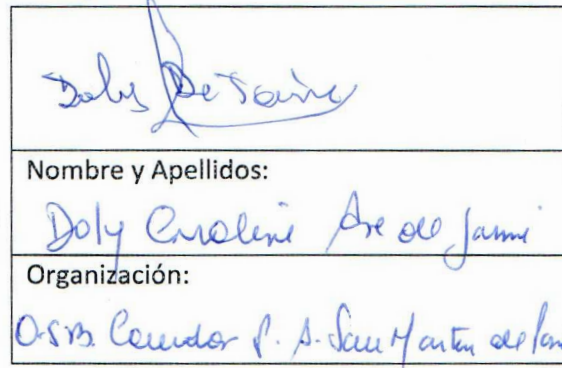 Doly De Jaime
Nombre y Apellidos:
Doly Caroline de Jaime
Organización:
O.S.B. Comedor P. A. San Martin de